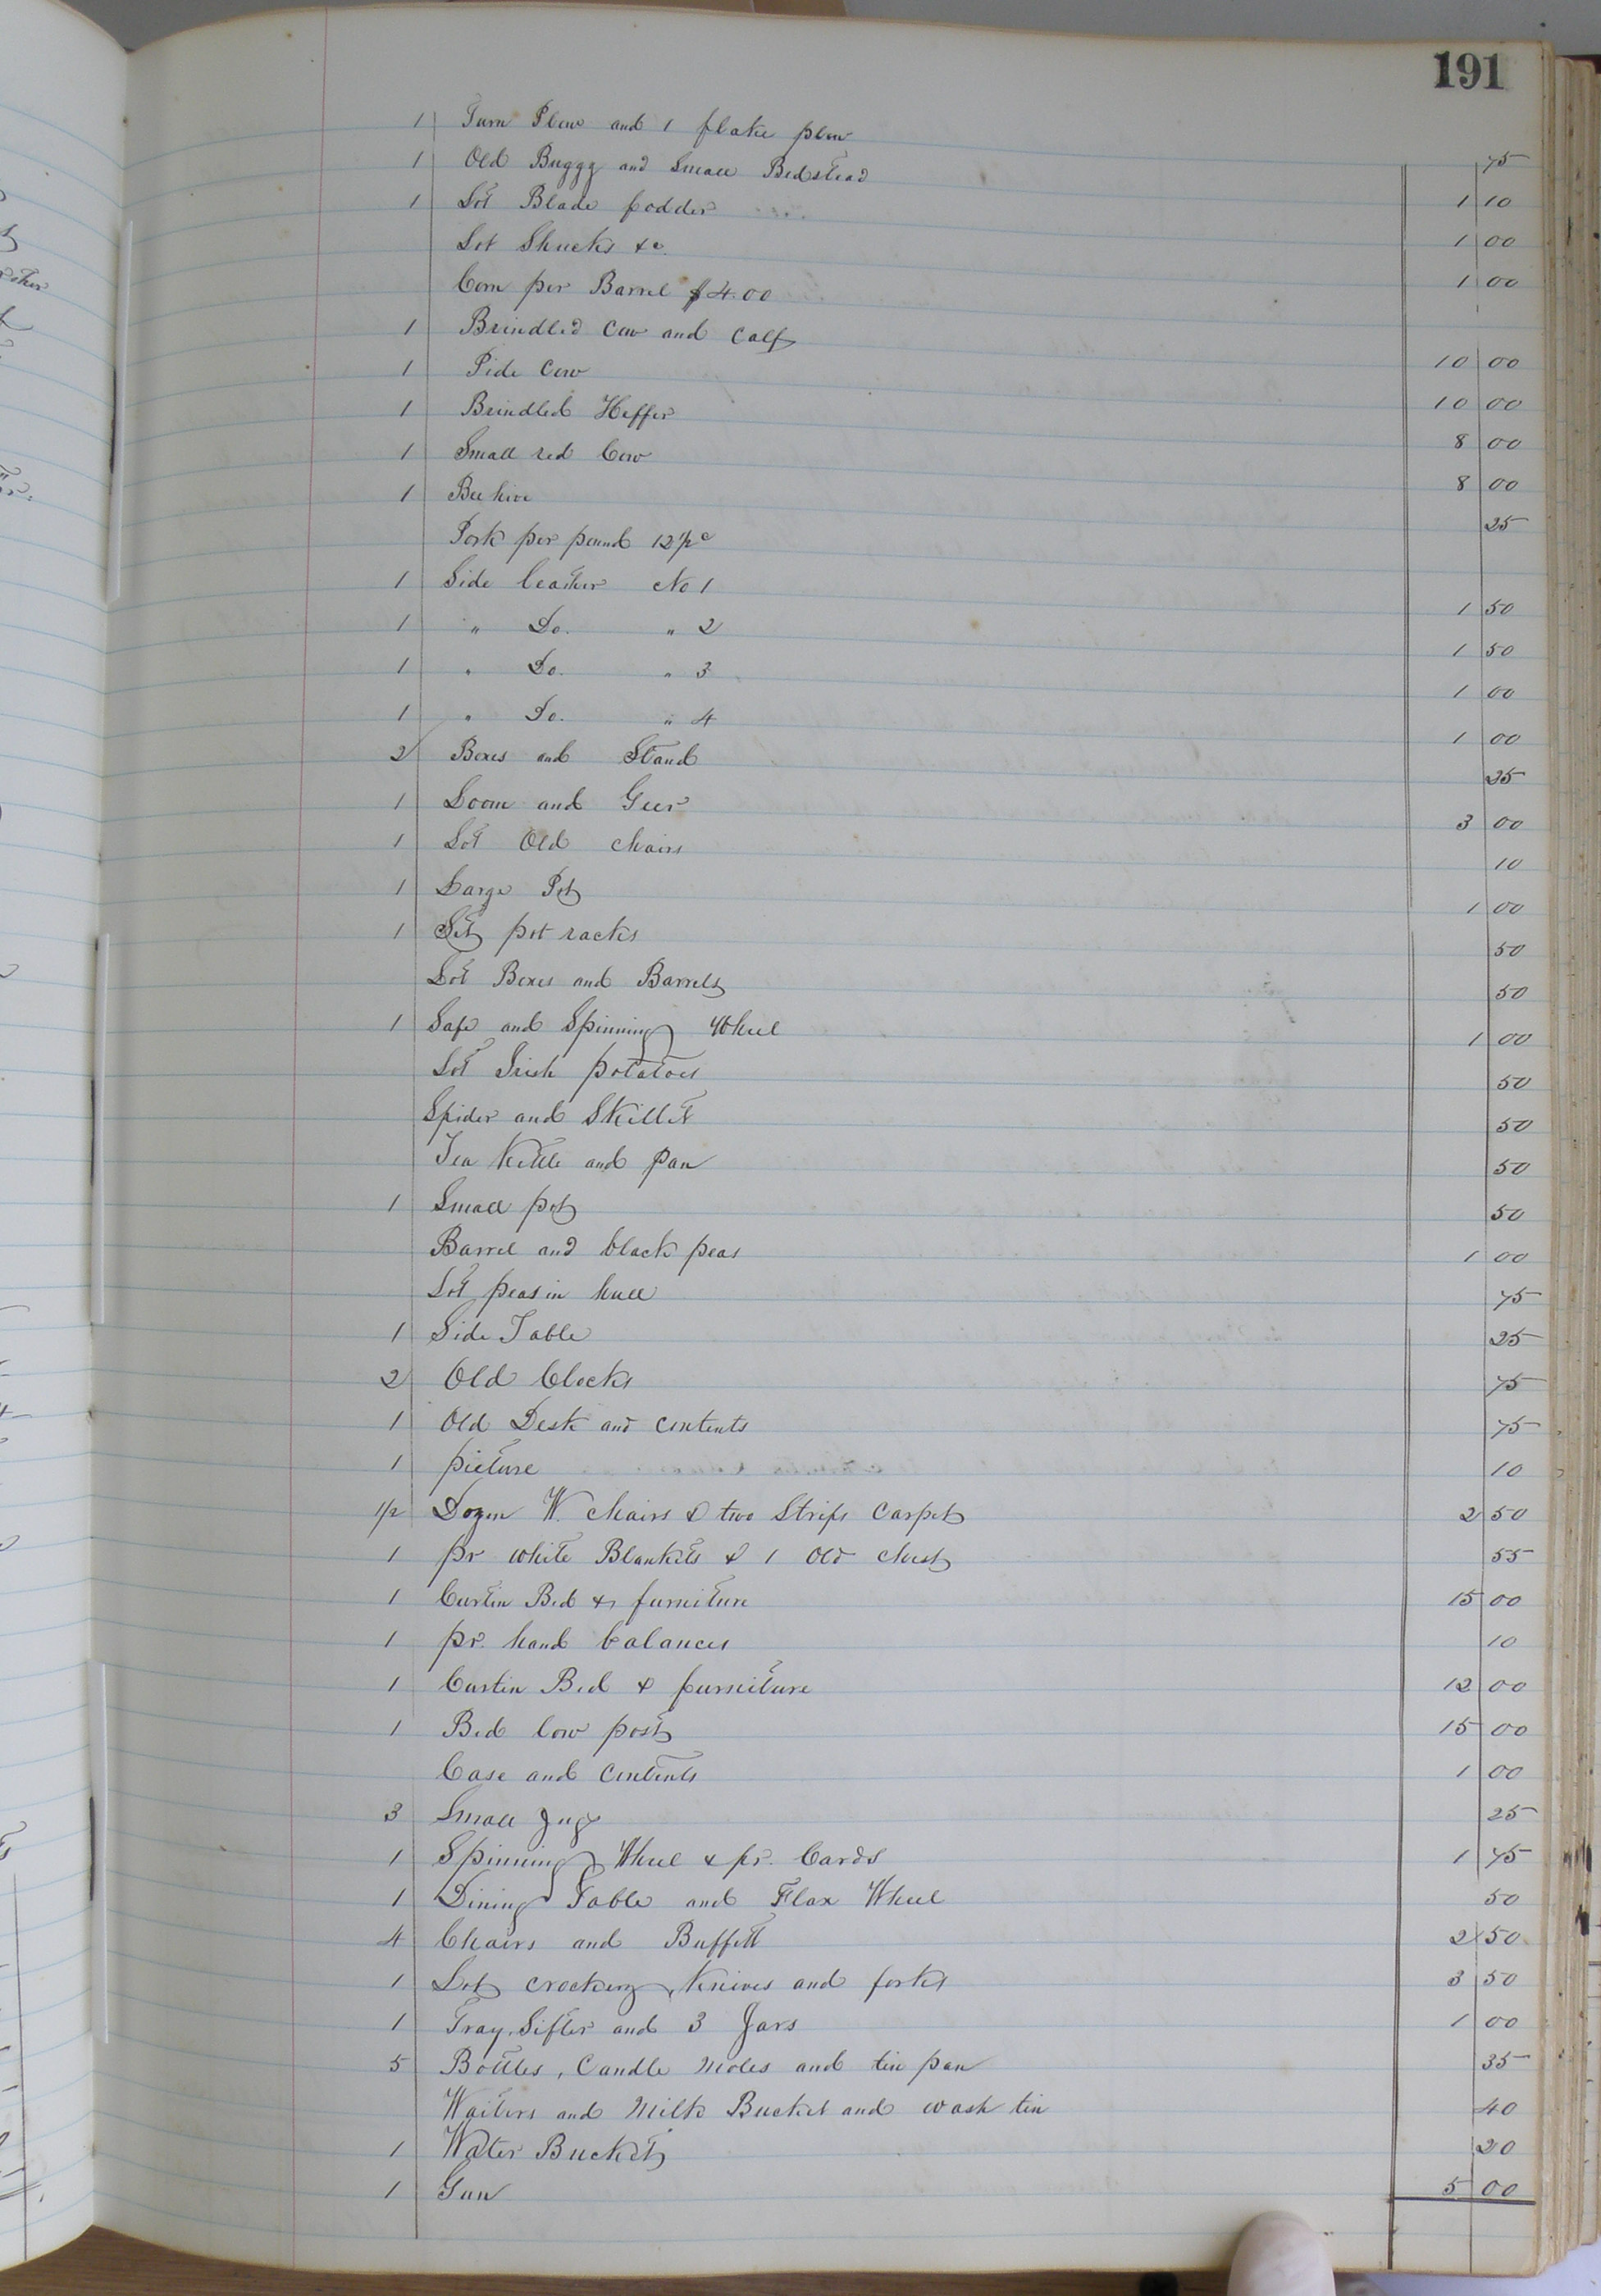 191
1 Turn Plow and 1 flake plow 75
1 Old Buggy and Small Bedstead 1 10
1 Lot Blade fodder 1 00
Lot Shucks &c. 1 00
Corn per Barrel $4.00
1 Brindled Cow and Calf 10 00
1 Pide Cow 10 00
1 Brindled Heffer 8 00
1 Small red Cow 8 00
1 Bee hive 25
Pork per pound 12½c
1 Side leather No 1 1 50
1 " Do. " 2 1 50
1 " Do. " 3 1 00
1 " Do. " 4 1 00
2 Boxes and Stand 25
1 Loom and Geer 3 00
1 Lot Old chairs 10
1 Large Pot 1 00
1 Set pot racks 50
Lot Boxes and Barrels 50
1 Safe and Spinning Wheel 1 00
Lot Irish potatoes 50
Spider and Skillet 50
Tea Kettle and pan 50
1 Small pot 50
Barrel and black peas 1 00
Lot peas in hull 75
1 Side Table 25
2 Old Clocks 75
1 Old Desk and contents 75
1 picture 10
1/2 Dozen W. chairs & two Strips Carpet 2 50
1 pr white Blankets & 1 old chest 55
1 Curtin Bed & furniture 15 00
1 pr. hand balances 10
1 Curtin Bed & furniture 12 00
1 Bed low post 15 00
Case and contents 1 00
3 Small Jugs 25
1 Spinning Wheel & pr. Cards 1 75
1 Dining Table and Flax Wheel 50
4 Chairs and Buffett 2 50
1 Lot crockery, Knives and forks 3 50
1 Tray, Sifter and 3 Jars 1 00
5 Bottles, Candle moles and tin pan 35
Waiters and Milk Bucket and wash tin 40
1 Water Bucket 20
1 Gun 5 00